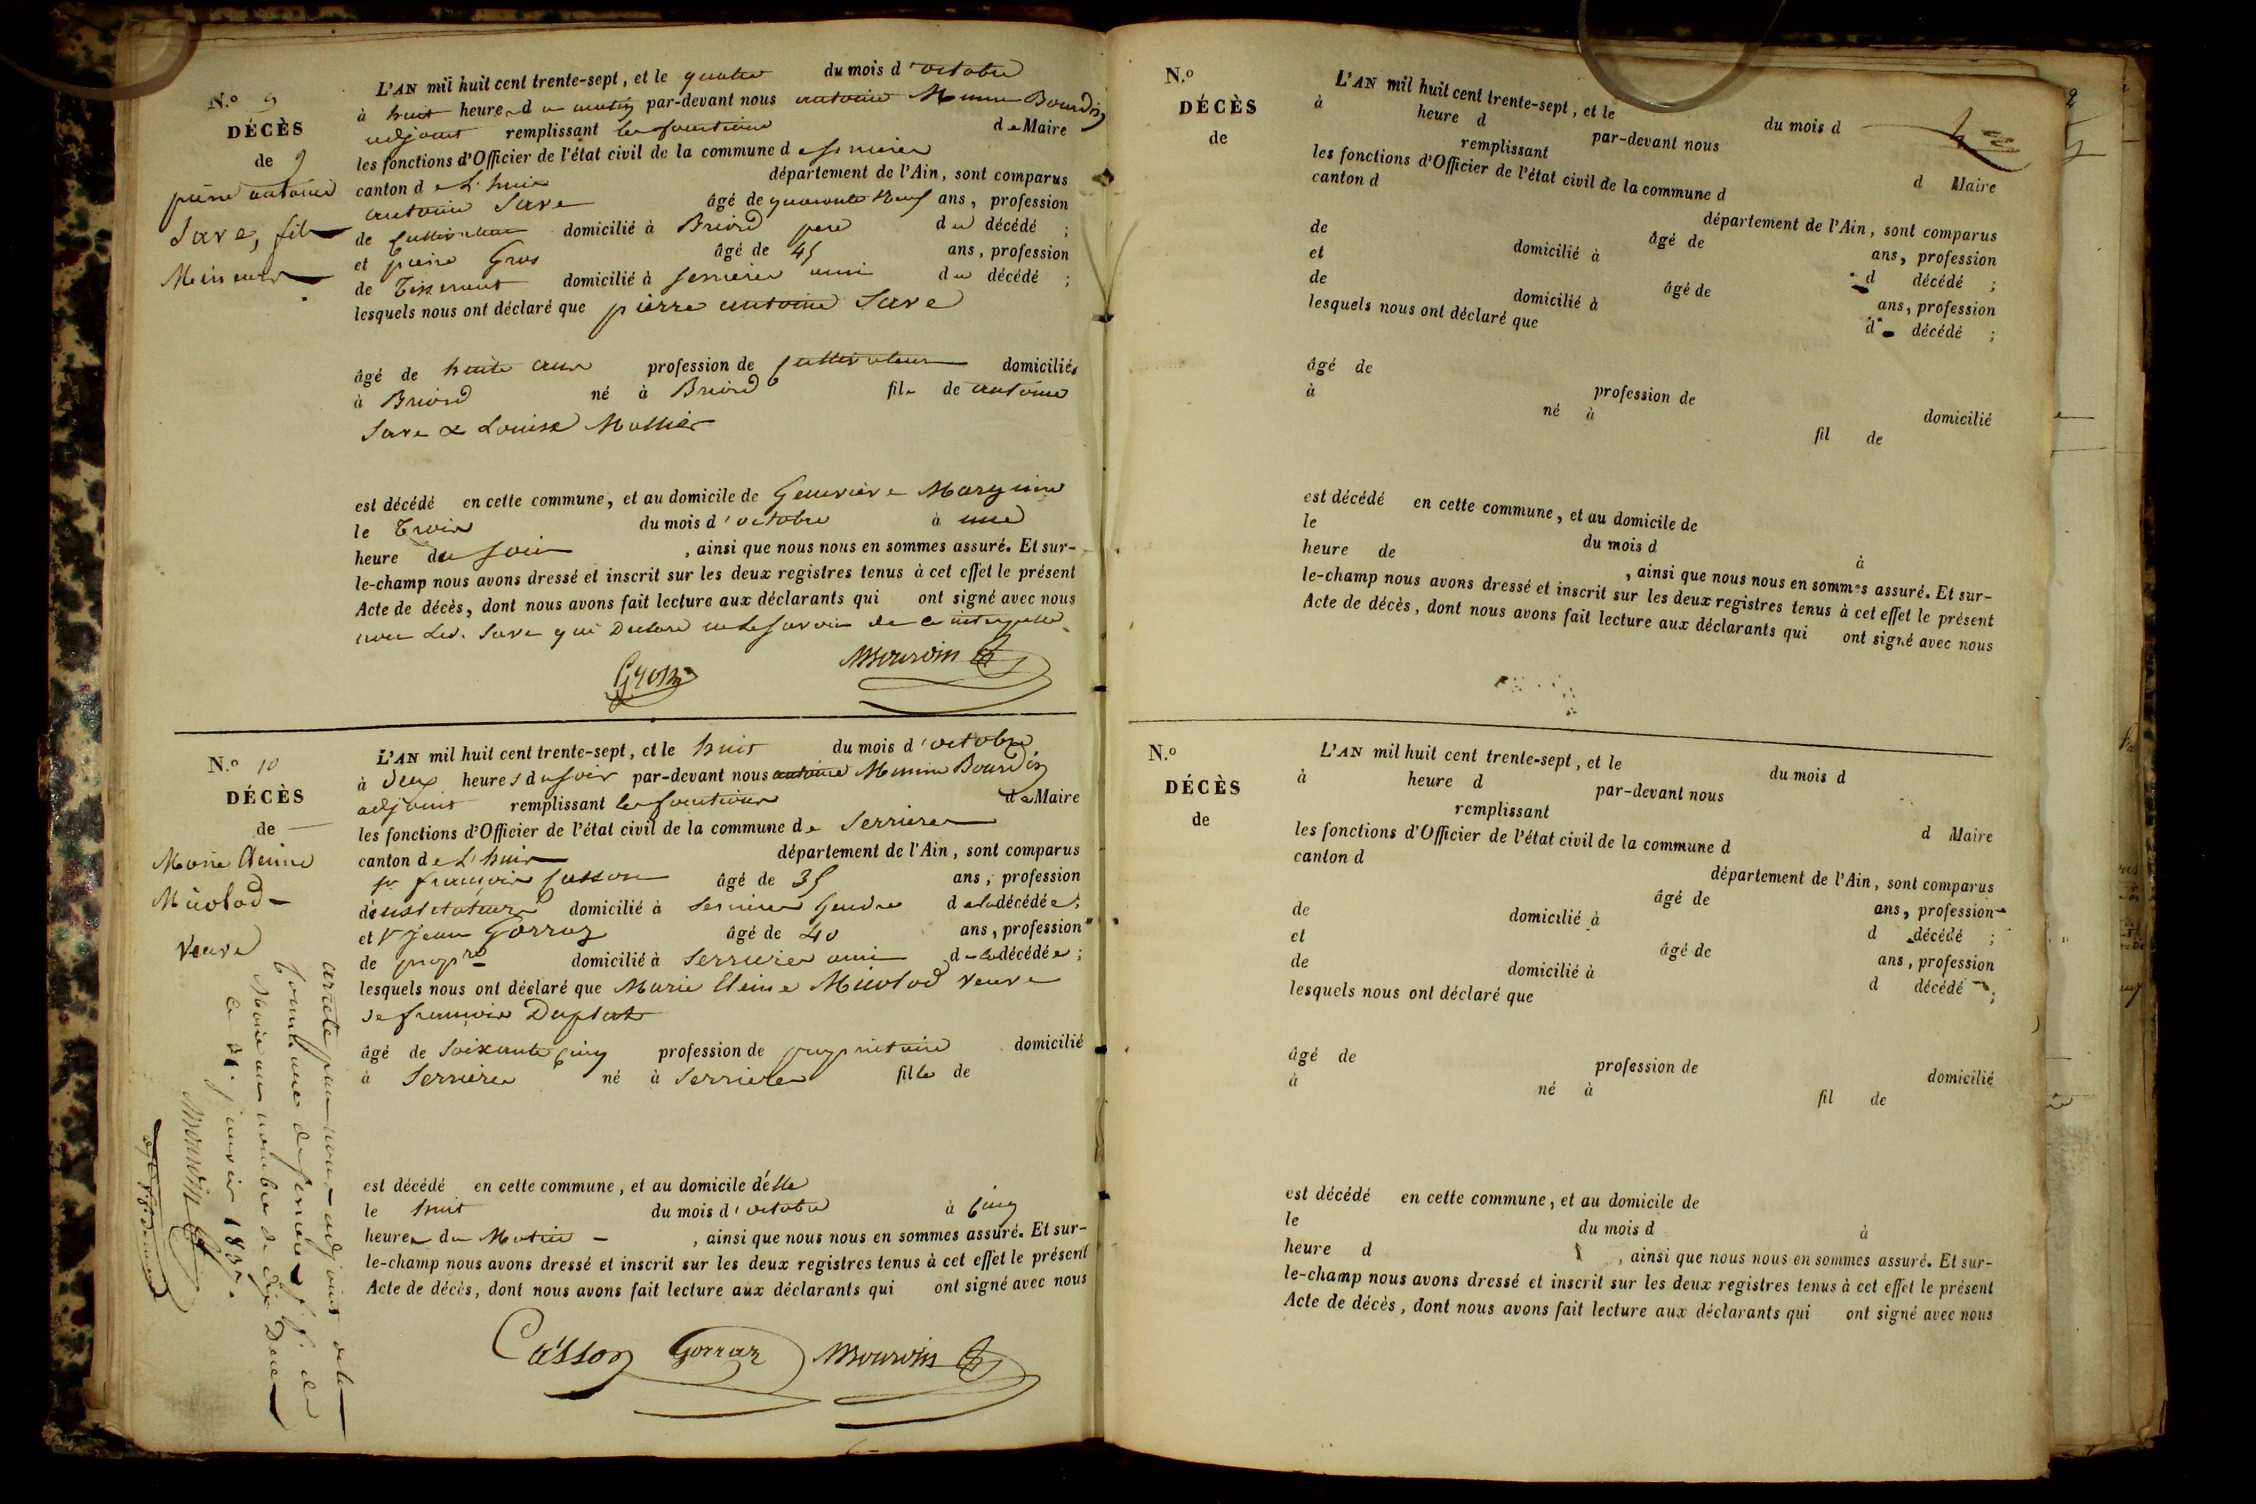 N.º 9
DÉCÈS
de
pierre antoine
Save, fils
Mineur
L'AN mil huit cent trente-sept, et le quatre du mois d'octobre
à huit heures du matin par-devant nous antoine Bourdin
adjoint remplissant les fonctions de Maire
les fonctions d'Officier de l'état civil de la commune de serrieres
canton de L'huis département de l'Ain, sont comparus
antoine Save âgé de quarante neuf ans, profession
de Cultivateur domicilié à Briord pere du décédé ;
et pierre Gros âgé de 45 ans, profession
de Tisserant domicilié à serrieres ami du décédé ;
lesquels nous ont déclaré que pierre antoine Save
âgé de huite ans profession de Cultivateur domicilié
à Briord né à Briord fils de antoine
Save & Louise Mollier
est décédé en cette commune, et au domicile de Genevieve
le Trois du mois d'octobre à une
heure du soir , ainsi que nous nous en sommes assuré. Et sur-
le-champ nous avons dressé et inscrit sur les deux registres tenus à cet effet le présent
Acte de décès, dont nous avons fait lecture aux déclarants qui ont signé avec nous
non Led. Save qui Declare ne le savoir de ce
Gros Bourdin
N.º 10
DÉCÈS
de
Marie
veuve
L'AN mil huit cent trente-sept, et le huit du mois d'octobre
à deux heures du soir par-devant nous antoine Bourdin
adjoint remplissant les fonctions de Maire
les fonctions d'Officier de l'état civil de la commune de Serrieres
canton de L'huis département de l'Ain, sont comparus
sr francois Casson âgé de 35 ans, profession
d'instituteur domicilié à serrieres Gendre de la décédée ;
et sr jean Gorraz âgé de 40 ans, profession
de propre domicilié à serrieres ami de la décédée ;
lesquels nous ont déclaré que Marie veuve
de francois Duplat
âgé de soixante Cinq profession de proprietaire domicilié
à Serrieres né à Serrieres fille de
est décédé en cette commune, et au domicile d'elle
le huit du mois d'octobre à Cinq
heures du Matin , ainsi que nous nous en sommes assuré. Et sur-
le-champ nous avons dressé et inscrit sur les deux registres tenus à cet effet le présent
Acte de décès, dont nous avons fait lecture aux déclarants qui ont signé avec nous
Casson Gorraz Bourdin
arreté par nous adjoint de la
Commune de serrieres
au nombre de dix Deces
ce 31 janvier 183
Bourdin
N.º
DÉCÈS
de
L'AN mil huit cent trente-sept, et le du mois d
à heure d par-devant nous
remplissant d Maire
les fonctions d'Officier de l'état civil de la commune d
canton d département de l'Ain, sont comparus
âgé de ans, profession
de domicilié à d décédé ;
et âgé de ans, profession
de domicilié à d décédé ;
lesquels nous ont déclaré que
âgé de profession de domicilié
à né à fil de
est décédé en cette commune, et au domicile de
le du mois d à
heure de , ainsi que nous nous en sommes assuré. Et sur-
le-champ nous avons dressé et inscrit sur les deux registres tenus à cet effet le présent
Acte de décès, dont nous avons fait lecture aux déclarants qui ont signé avec nous
N.º
DÉCÈS
de
L'AN mil huit cent trente-sept, et le du mois d
à heure d par-devant nous
remplissant d Maire
les fonctions d'Officier de l'état civil de la commune d
canton d département de l'Ain, sont comparus
âgé de ans, profession
de domicilié à d décédé ;
et âgé de ans, profession
de domicilié à d décédé ;
lesquels nous ont déclaré que
âgé de profession de domicilié
à né à fil de
est décédé en cette commune, et au domicile de
le du mois d à
heure d , ainsi que nous nous en sommes assuré. Et sur-
le-champ nous avons dressé et inscrit sur les deux registres tenus à cet effet le présent
Acte de décès, dont nous avons fait lecture aux déclarants qui ont signé avec nous